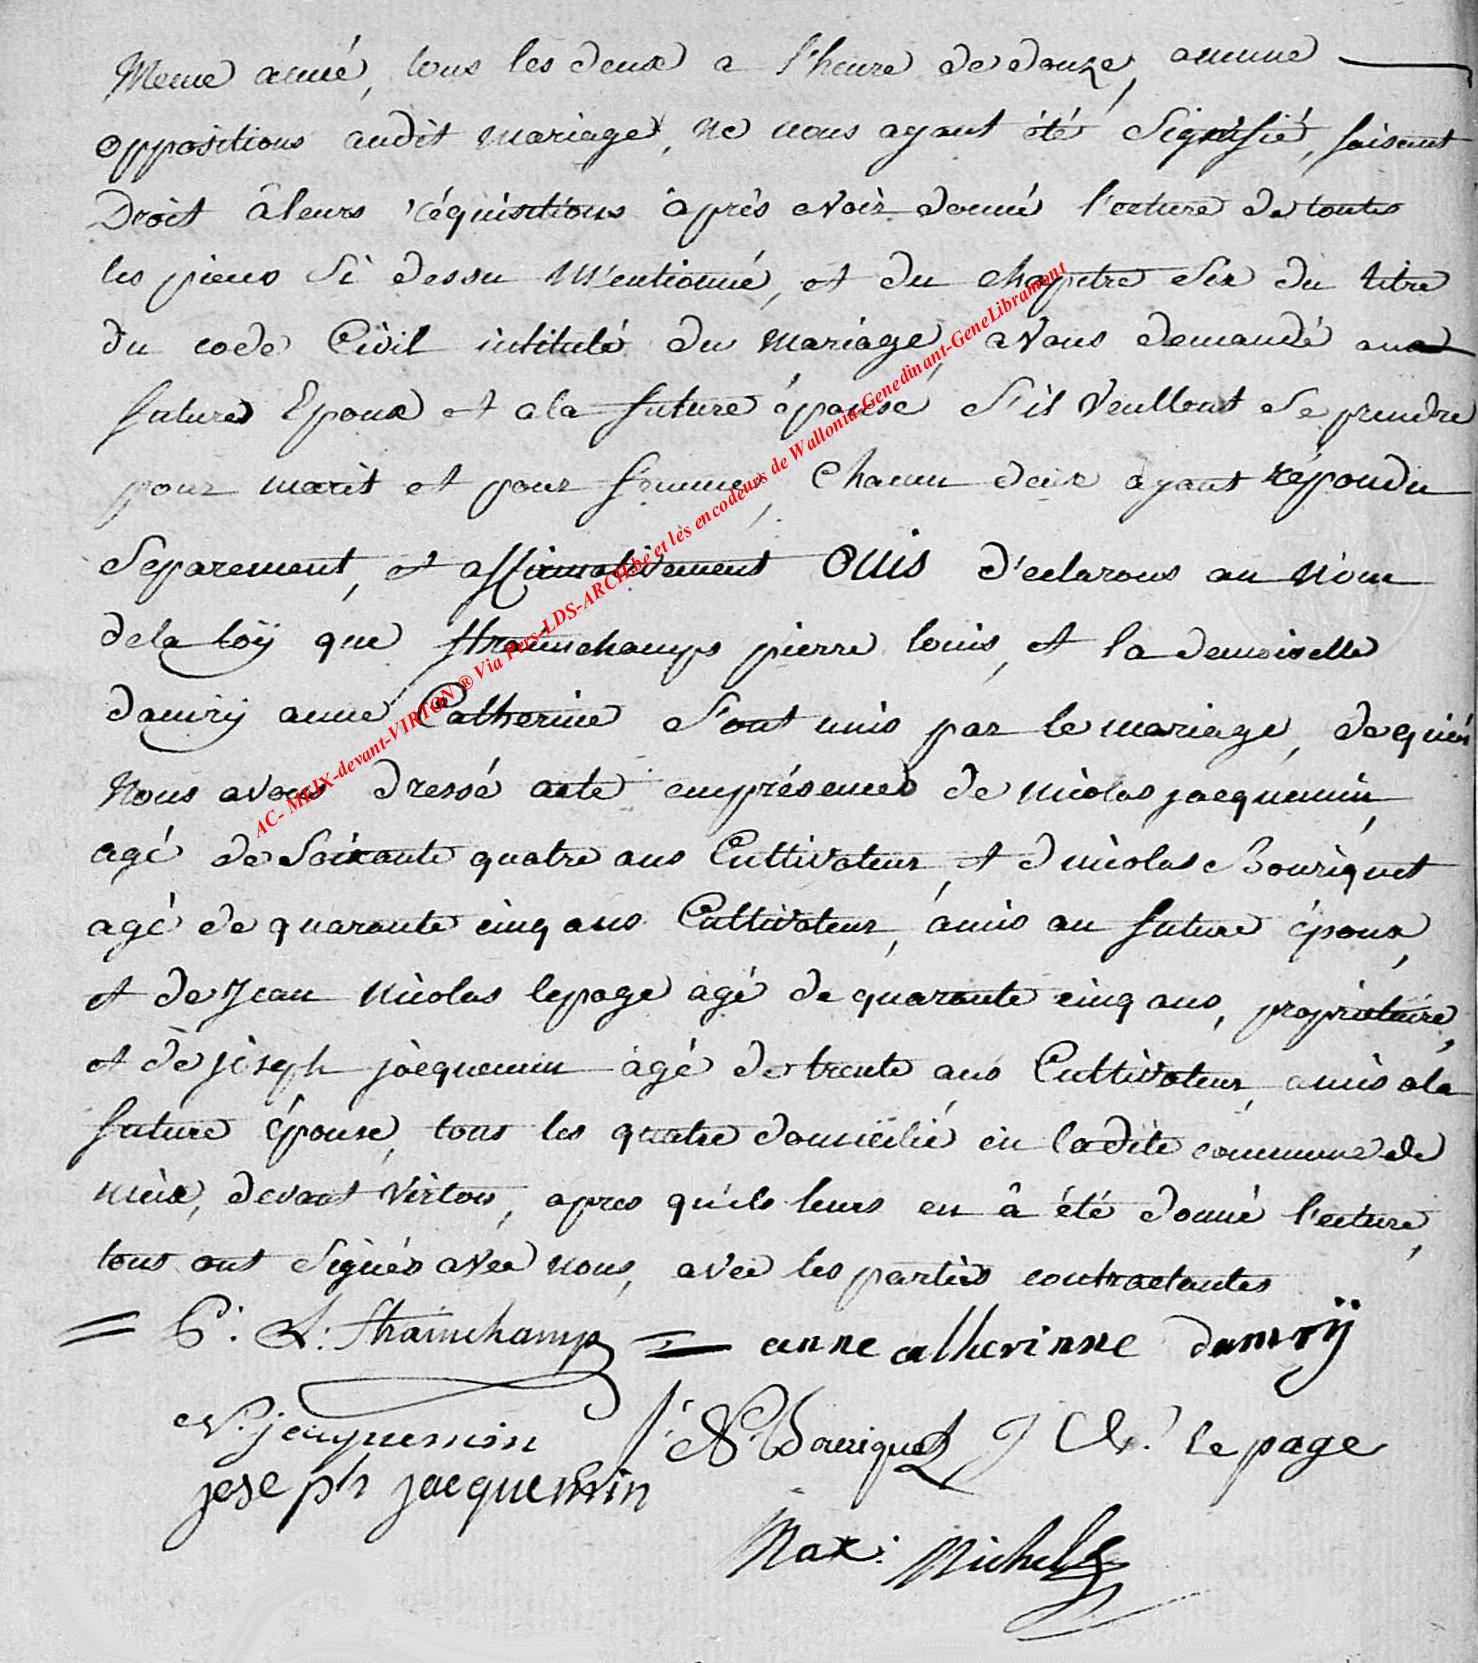 Meme année, tous les deux a l'heure de douze, aucune
oppositions audit mariage, ne nous ayant été Signifié, faisant
Droit âleurs réquisitions âprès avoir donné l'ecture de toutes
les pieces Si dessu Mentionné, et du chapitre Six du titre
du code Civil intitulé du Mariage, avons demandé aux
future Epoux et ala future épouse S'il Veullent se prendre
pour marit et pour femme, Chacun deux ayant répondu
Separement, et affirmativement OUIS d'eclarons au Nom
dela loÿ que Strainchamps pierre louis, et la demoiselle
damrÿ anne Catherine S'ont unis par le mariage, de quiei
Nous avons dressé acte emprésence de Nicolas jacquemin,
agé de Soixante quatre ans Cultivateur, et d nicolas Bouriquet
agé de quarante cinq ans Cultivateur, âmis au future époux,
et de Jean Nicolas lepage agé de quarante cinq ans, propriétaire,
et de joseph jacquemin agé de trente ans Cultivateur, amis ala
future épouse, tous les quatre domicilié en ladite commune de
Meix, devant Virton, apres qu'ils leurs en â été donné l'ecture,
tous ont Signés avec nous, avec les parties contractantes
P. L. Strainchamps anne catherinne damrÿ
N. jacquemin J. N. Bouriquet J N. le page
joseph jacquemin
Max. Michel
AC- MEIX-devant-VIRTON ® Via Pers-LDS-ARCH.be et les encodeurs de Wallonia-Genedinant-GeneLibramont